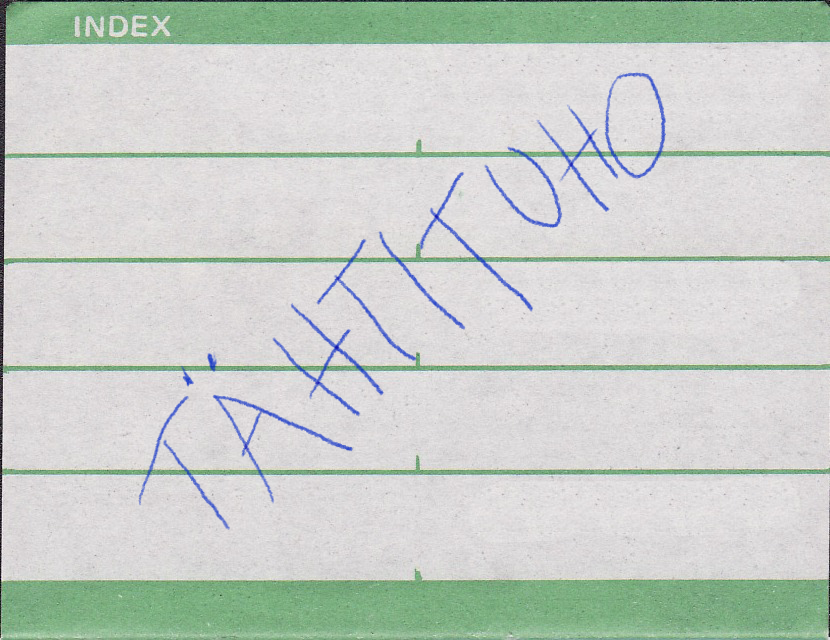 INDEX
TÄHTITUHO